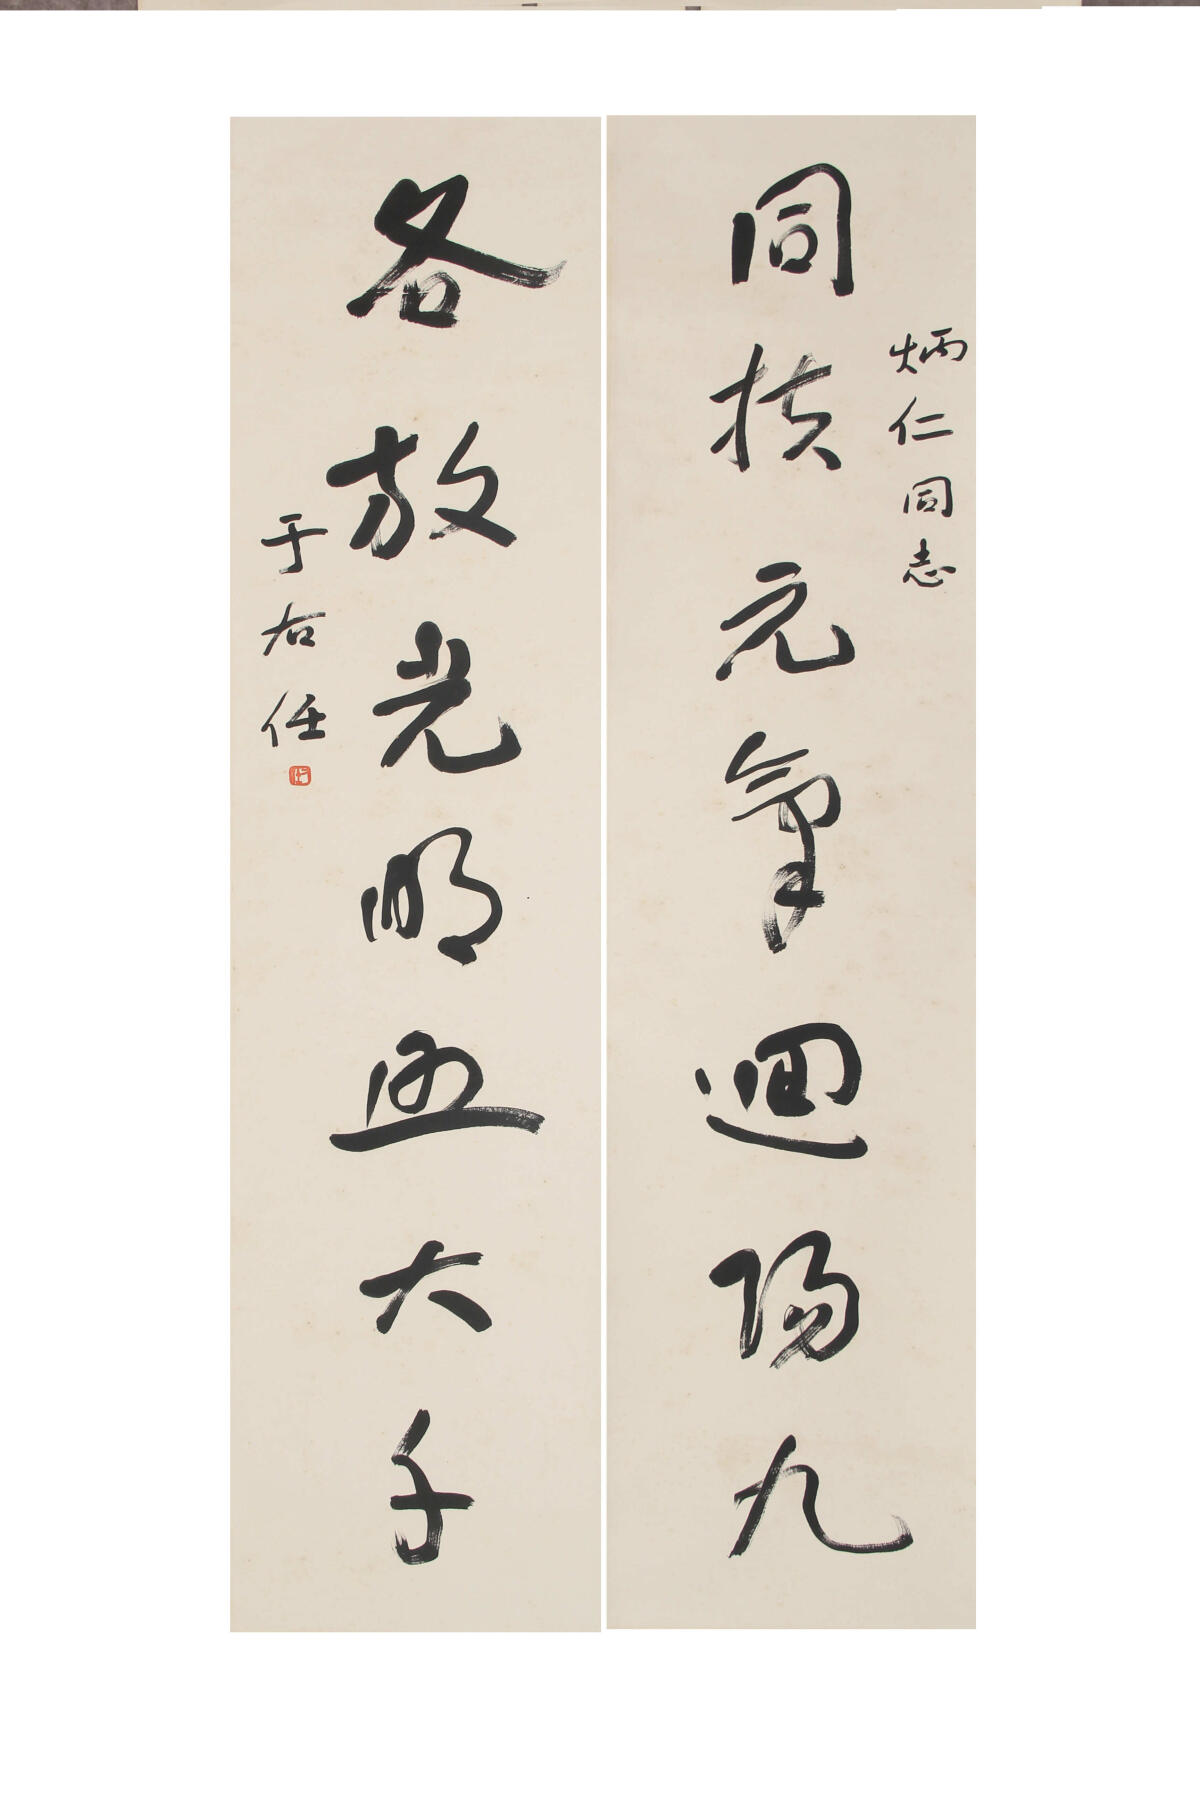 炳仁同志
同扶元氣迴陽九
各放光明照大千
于右任